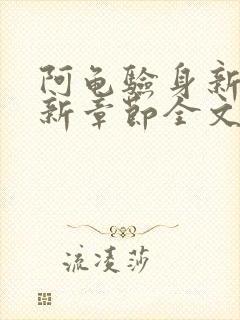 阿龟验身新
新章节全文
流凌莎